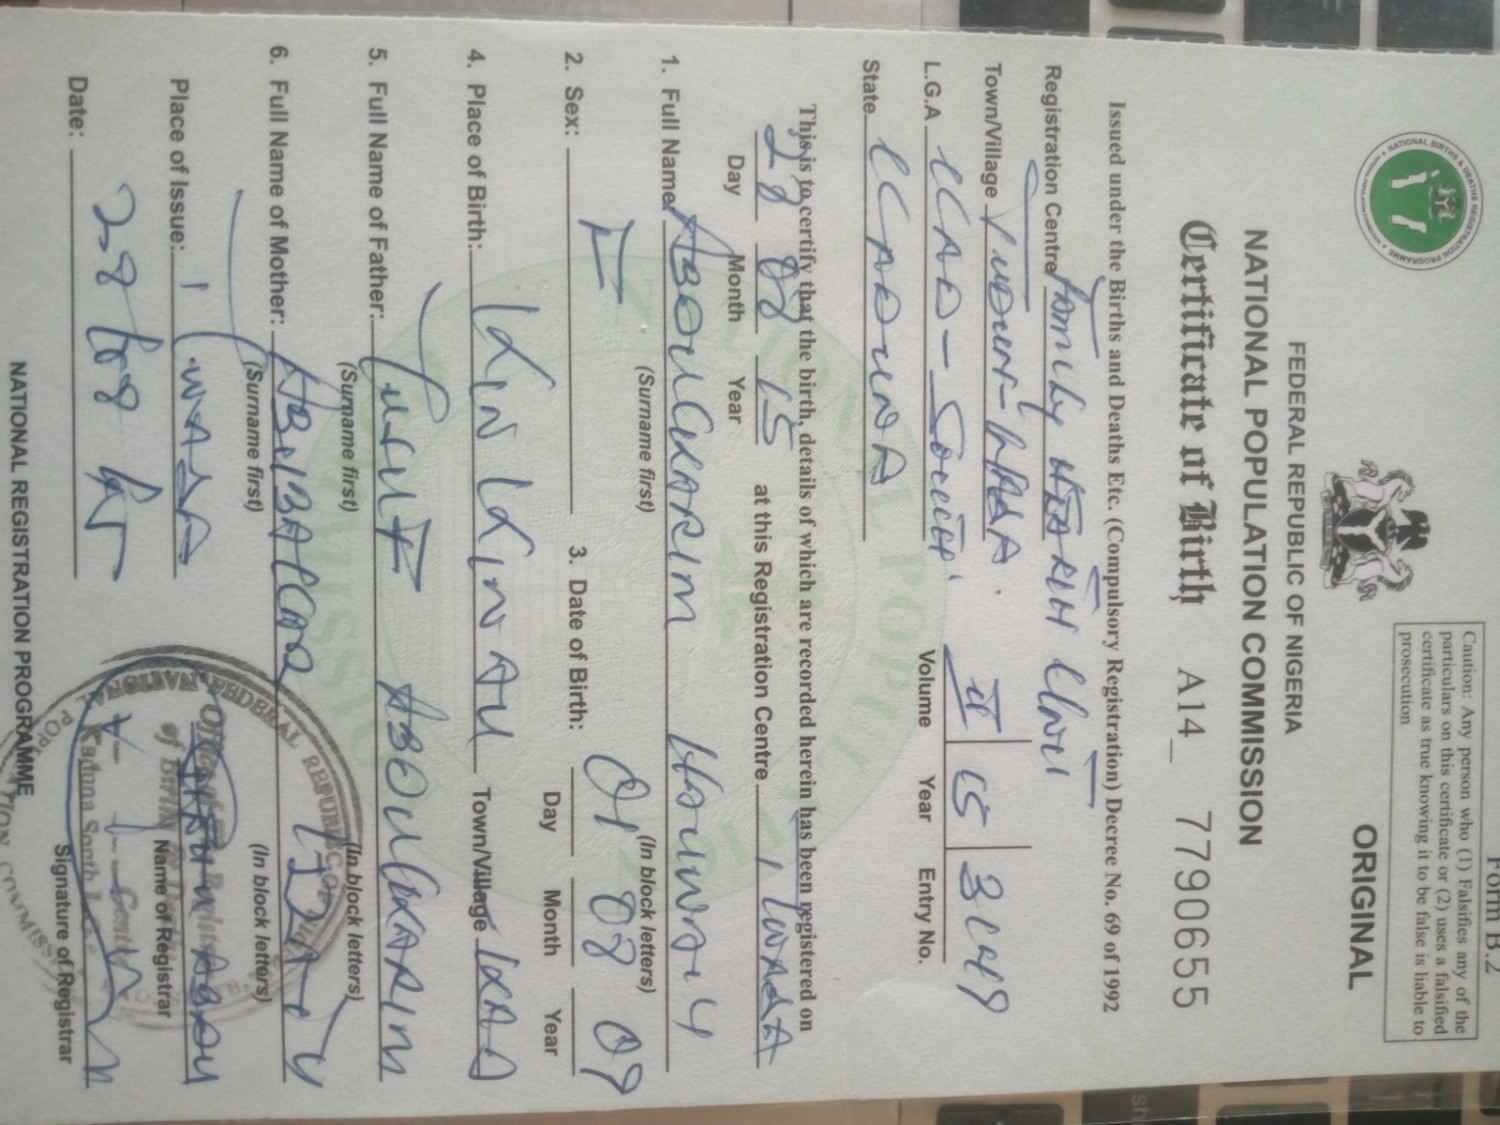 Form B.2
ORIGINAL
Caution: Any person who (1) Falsifies any of the
particulars on this certificate or (2) uses a falsified
certificate as true knowing it to be false is liable to
prosecution
NATIONAL BIRTHS & DEATHS REGISTRATION PROGRAMME
FEDERAL REPUBLIC OF NIGERIA
NATIONAL POPULATION COMMISSION
Certificate of Birth A14_ 7790655
Issued under the Births and Deaths Etc. (Compulsory Registration) Decree No. 69 of 1992
Registration Centre Family HEARLH
Town/Village
L.G.A KAD-South
State KADUNA
II 15
Volume Year Entry No.
This is to certify that the birth, details of which are recorded herein has been registered on
28 08 15 at this Registration Centre
Day Month Year
1. Full Name ABDULKARIM
(Surname first) (In block letters)
2. Sex: F 3. Date of Birth: 01 08 09
Day Month Year
4. Place of Birth: KINKINAU Town/Village KAD
5. Full Name of Father: YUSUF ABDULKARIM
(Surname first) (In block letters)
6. Full Name of Mother: ABUBAKAR
(Surname first) (In block letters)
Place of Issue:
Name of Registrar
Date: 28/08/15
Signature of Registrar
NATIONAL REGISTRATION PROGRAMME